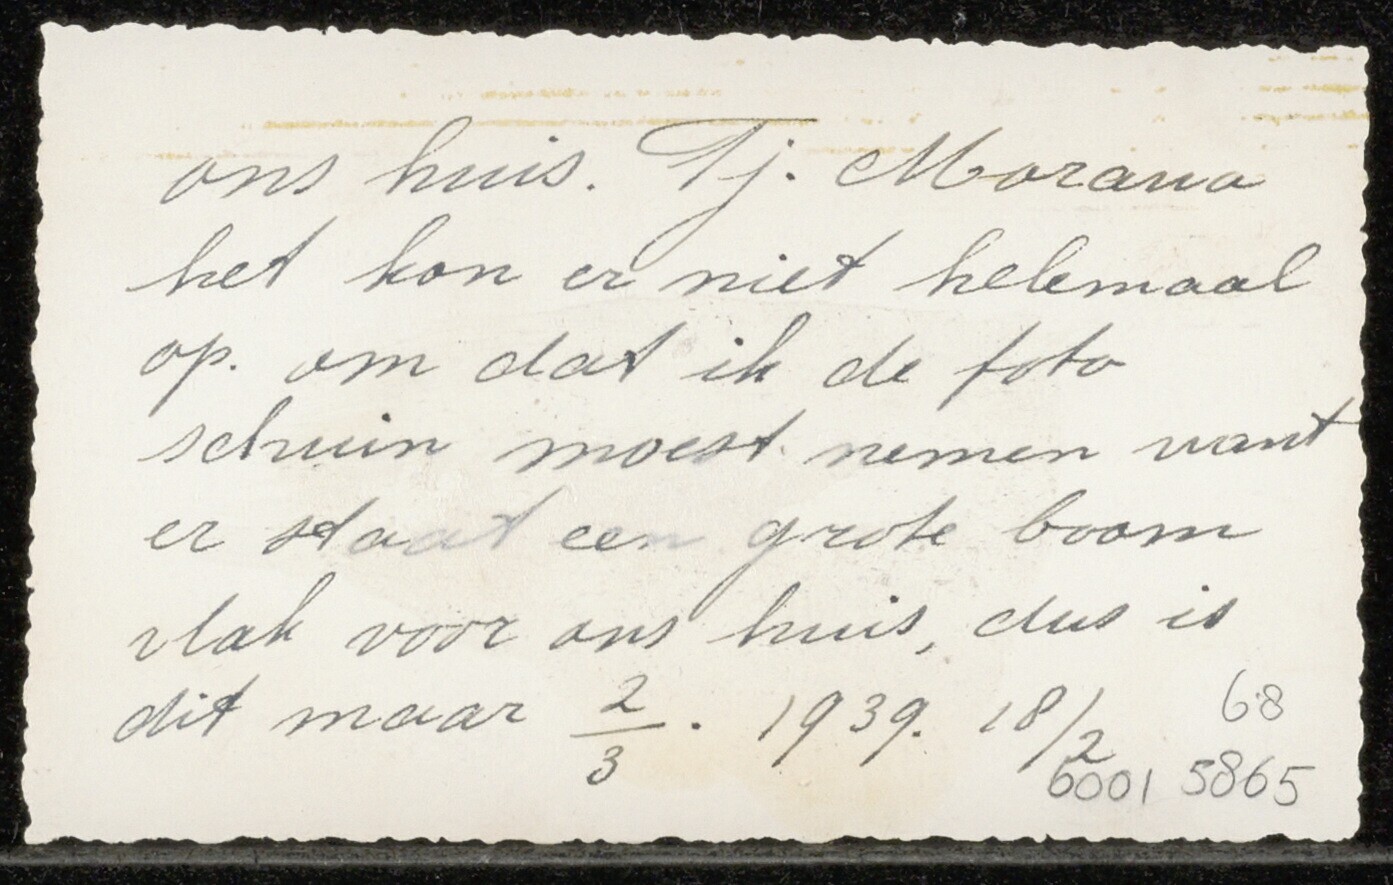 ons huis. Tj. Morawa
het kon er niet helemaal
op. om dat ik de foto
schuin moest nemen want
er staat een grote boom
vlak voor ons huis, dus is
dit maar 2/3. 1939. 18/2
68
6001 5865